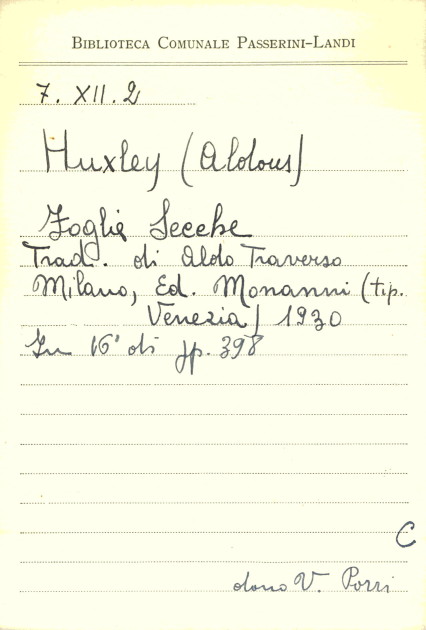 BIBLIOTECA COMUNALE PASSERINI-LANDI
7. XII. 2
Huxley (Aldous)
Foglie Secche
Trad. di Aldo Traverso
Milano, Ed. Monanni (tip.
Venezia) 1930
In 16° di pp. 398
C
dono V. Porri